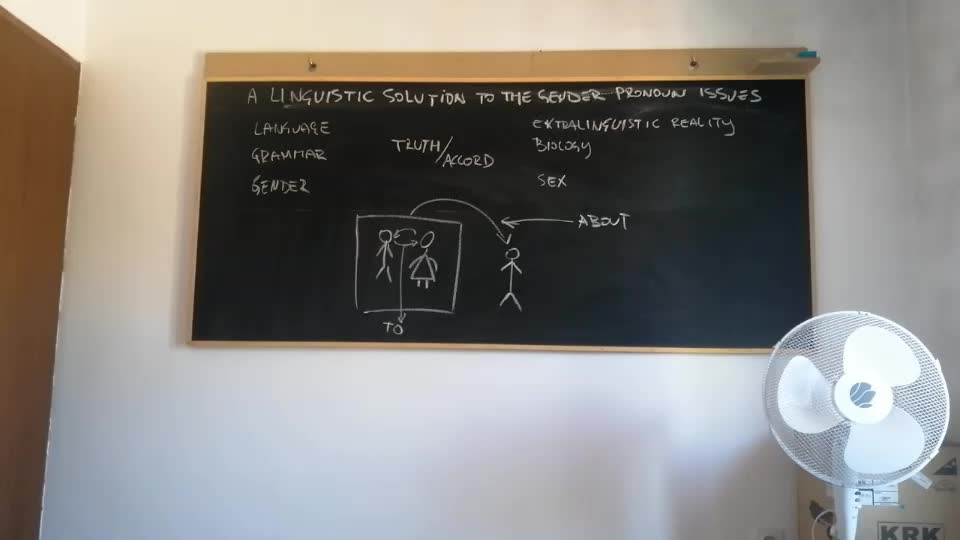 A LINGUISTIC SOLUTION TO THE GENDER PRONOUN ISSUES
LANGUAGE
GRAMMAR
GENDER
TRUTH/
ACCORD
EXTRALINGUISTIC REALITY
BIOLOGY
SEX
ABOUT
TO
KRK